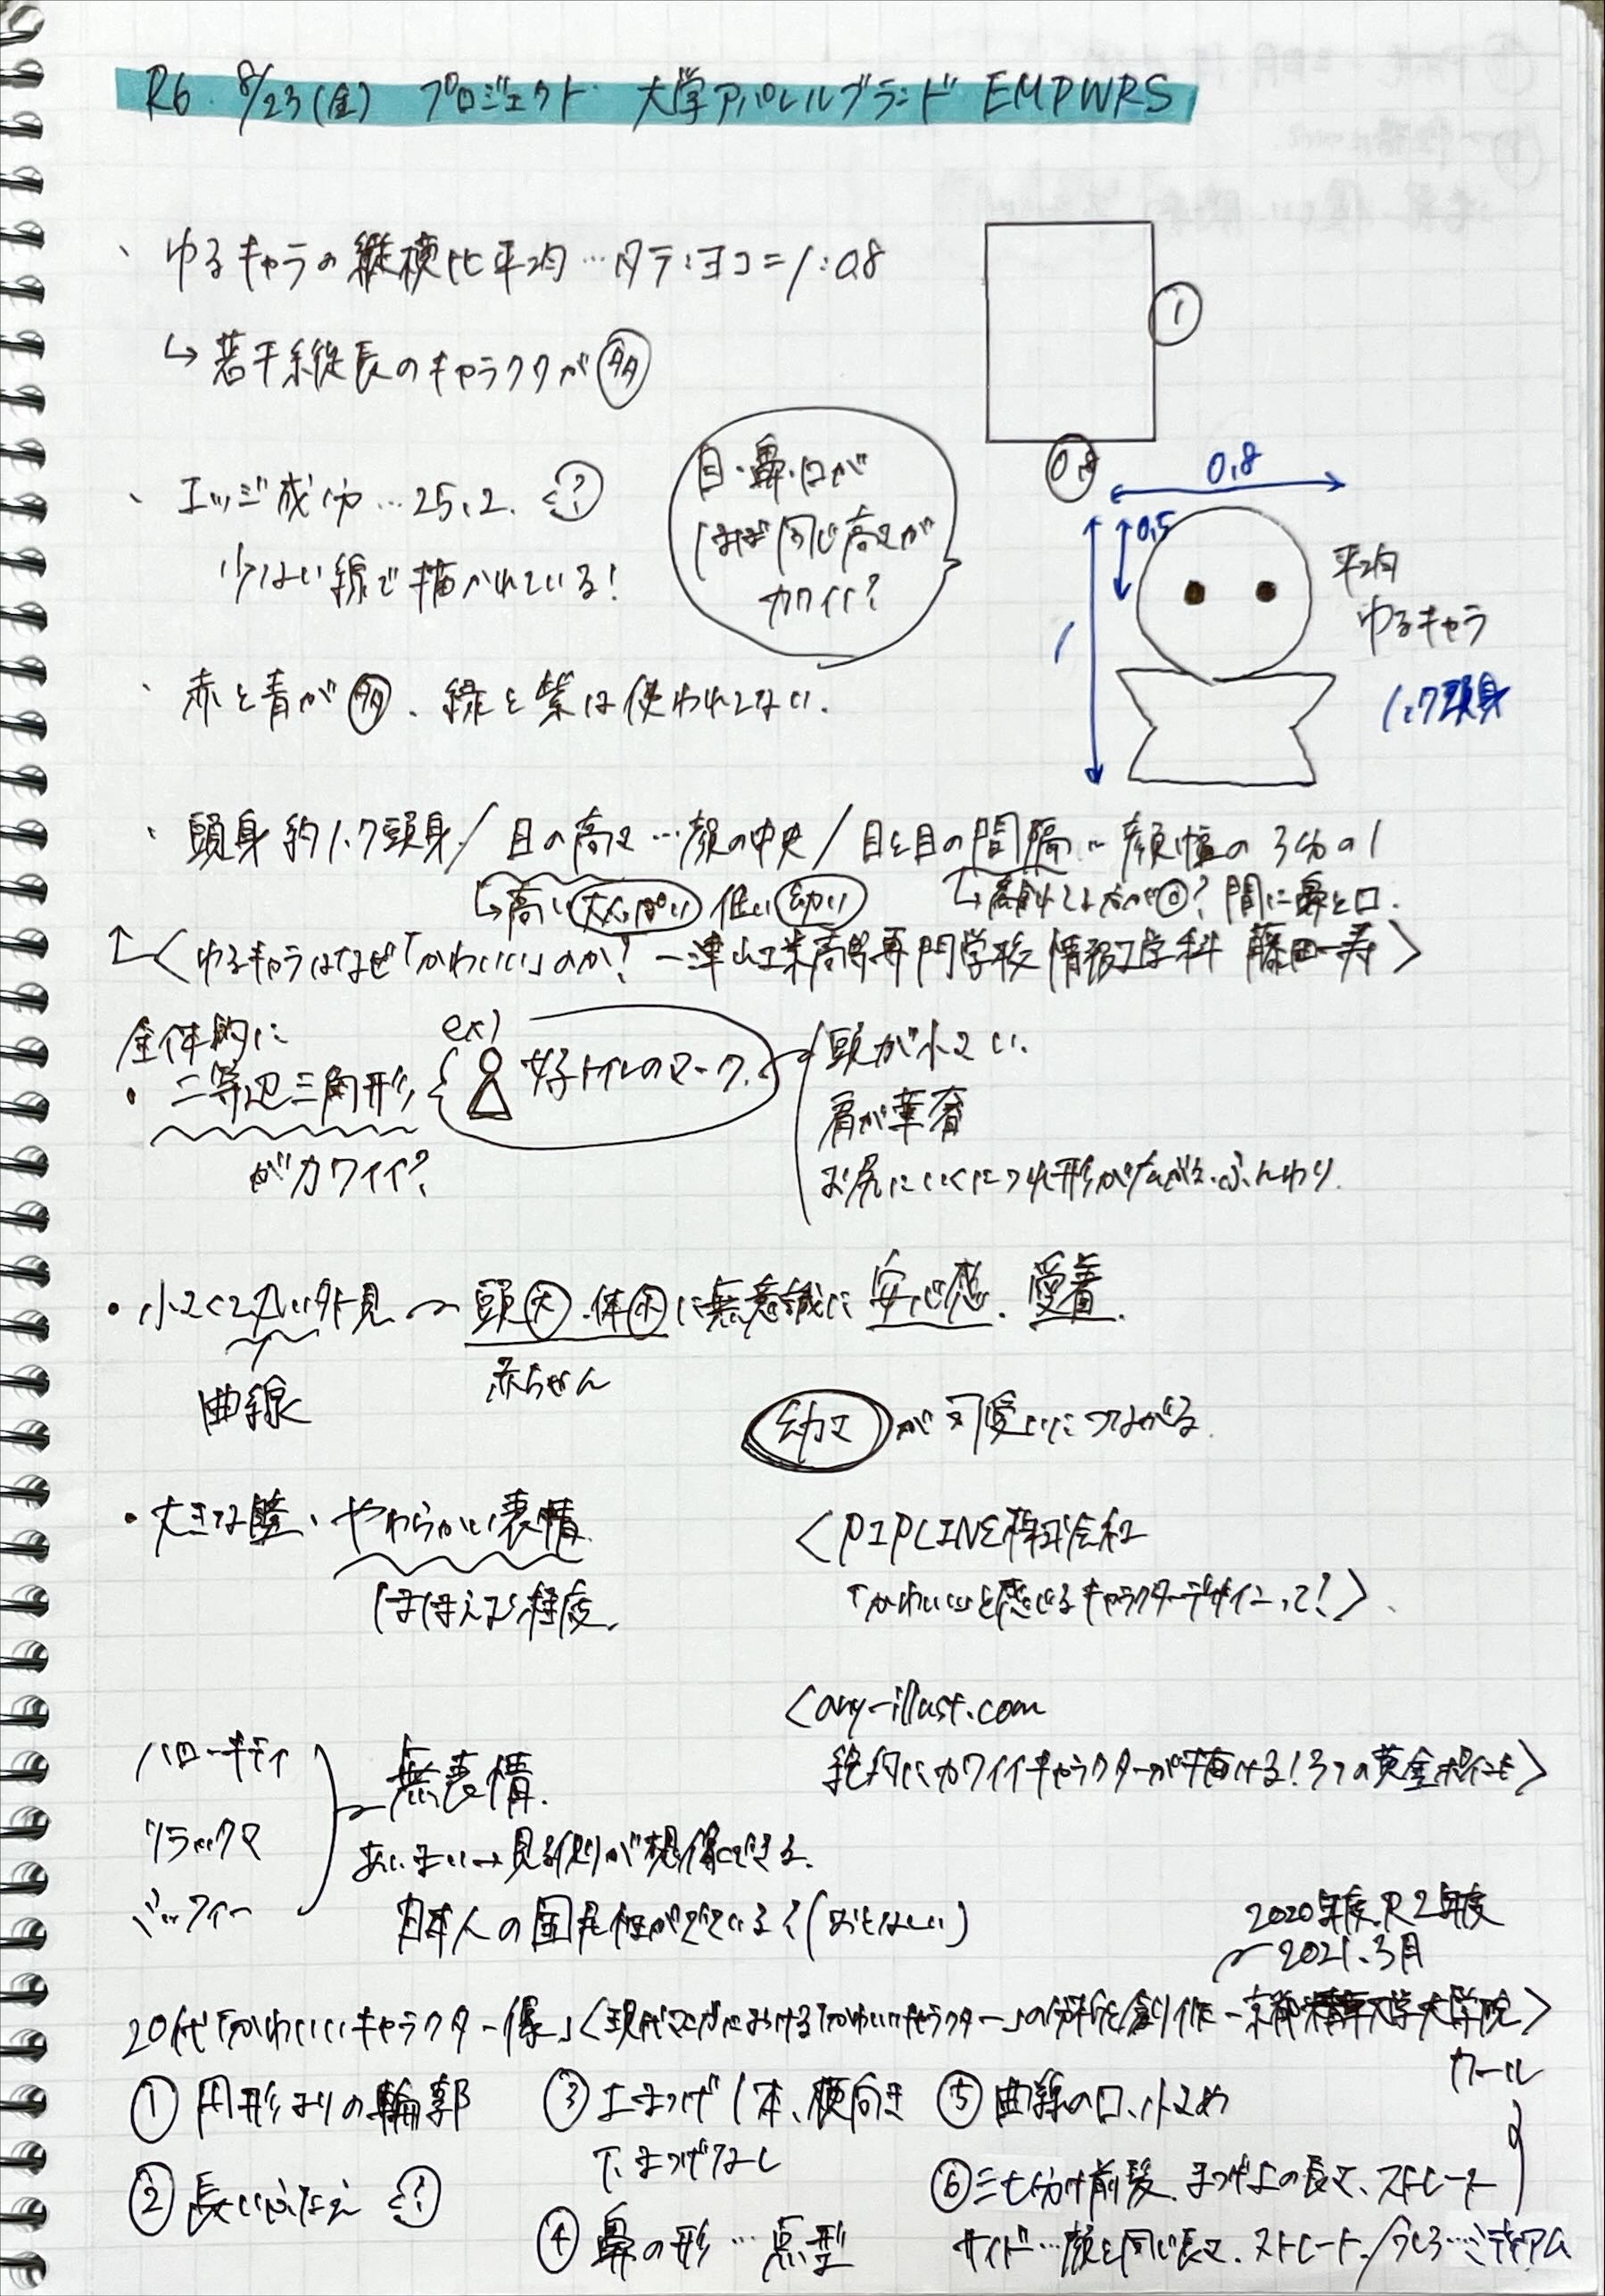 R6. 8/23(金) プロジェクト 大学アパレルブランド EMPWRS
、ゆるキャラの縦横比平均…タテ:ヨコ=1:0.8
↳若干縦長のキャラクタが多
1
0.8
、エッジ成分…25.2. ?
少ない線で描かれている!
目・鼻・口が
ほぼ同じ高さが
カワイイ?
0.8
0.5
1
平均
ゆるキャラ
1.7頭身
、赤と青が多、緑と紫は使われてない.
、頭身 約1.7頭身/目の高さ…顔の中央/目と目の間隔…顔幅の3分の1
↳高い大人っぽい 低い幼い
↳離れてる方が◎?間に鼻と口.
↑<ゆるキャラはなぜ「かわいい」のか?ー津山工業高等専門学校 情報工学科 藤田一寿>
全体的に
・二等辺三角形
がカワイイ?
ex)
女子トイレのマーク.
頭が小さい.
肩が華奢
お尻にいくにつれ形が ふんわり.
・小さくて丸い外見 〜 頭大.体小に無意識に安心感.愛着.
曲線
赤ちゃん
幼さが可愛いにつながる.
・大きな瞳、やわらかい表情
ほほえむ程度.
<PIPLINE株式会社
「かわいいと感じるキャラクターデザインって?>
<any-illust.com
絶対にカワイイキャラクターが描ける!3つの黄金ポイント>
ハローキティ
リラックマ
ミッフィー
無表情.
あいまい→見る側が想像できる.
日本人の国民性がでている?(おとなしい)
2020年度.R2年度
2021.3月
20代「かわいいキャラクター像」<現代マンガにおける「かわいいキャラクター」の分析と創作ー京都精華大学大学院>
① 円形よりの輪郭
② 長いふたえ ?
③ 上まつげ1本、横向き
下まつげなし
④ 鼻の形…点型
⑤ 曲線の口、小さめ
カール
⑥ 三七分け前髪.まつげ上の長さ、ストレート
サイド…顔と同じ長さ.ストレート./うしろ…ミディアム